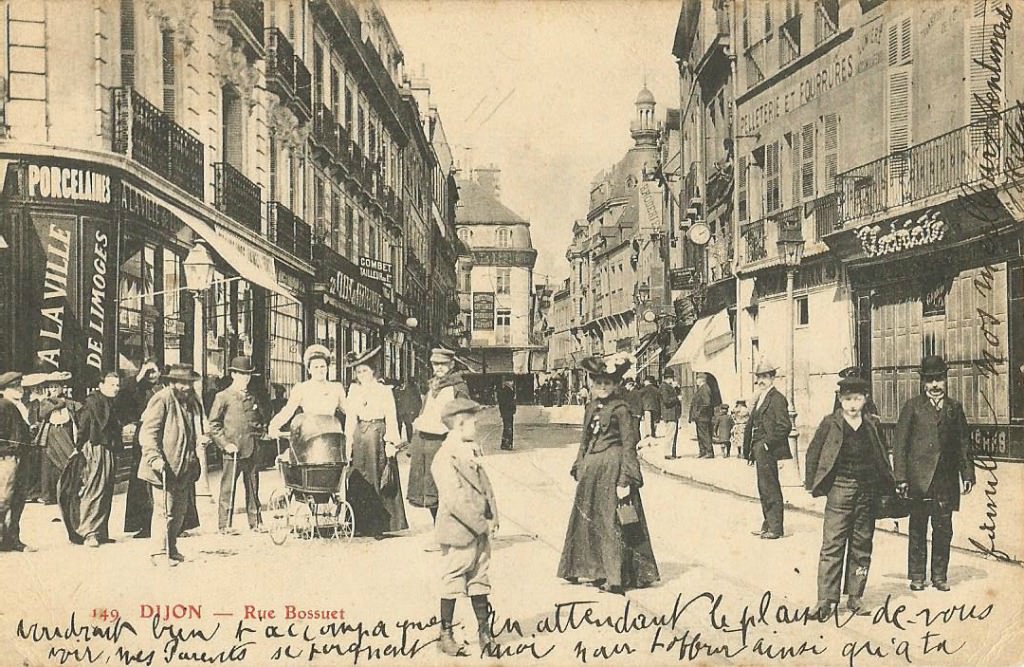 PORCELAINES
A LA VILLE
DE LIMOGES
COMBET
TAILLEUR
PELLETERIE ET FOURRURES
149 DIJON — Rue Bossuet
voudrait bien t'accompagner. En attendant le plaisir de vous
voir, mes Parents se joignent à moi pour t'offrir ainsi qu'à ta
famille nos meilleurs sentiments